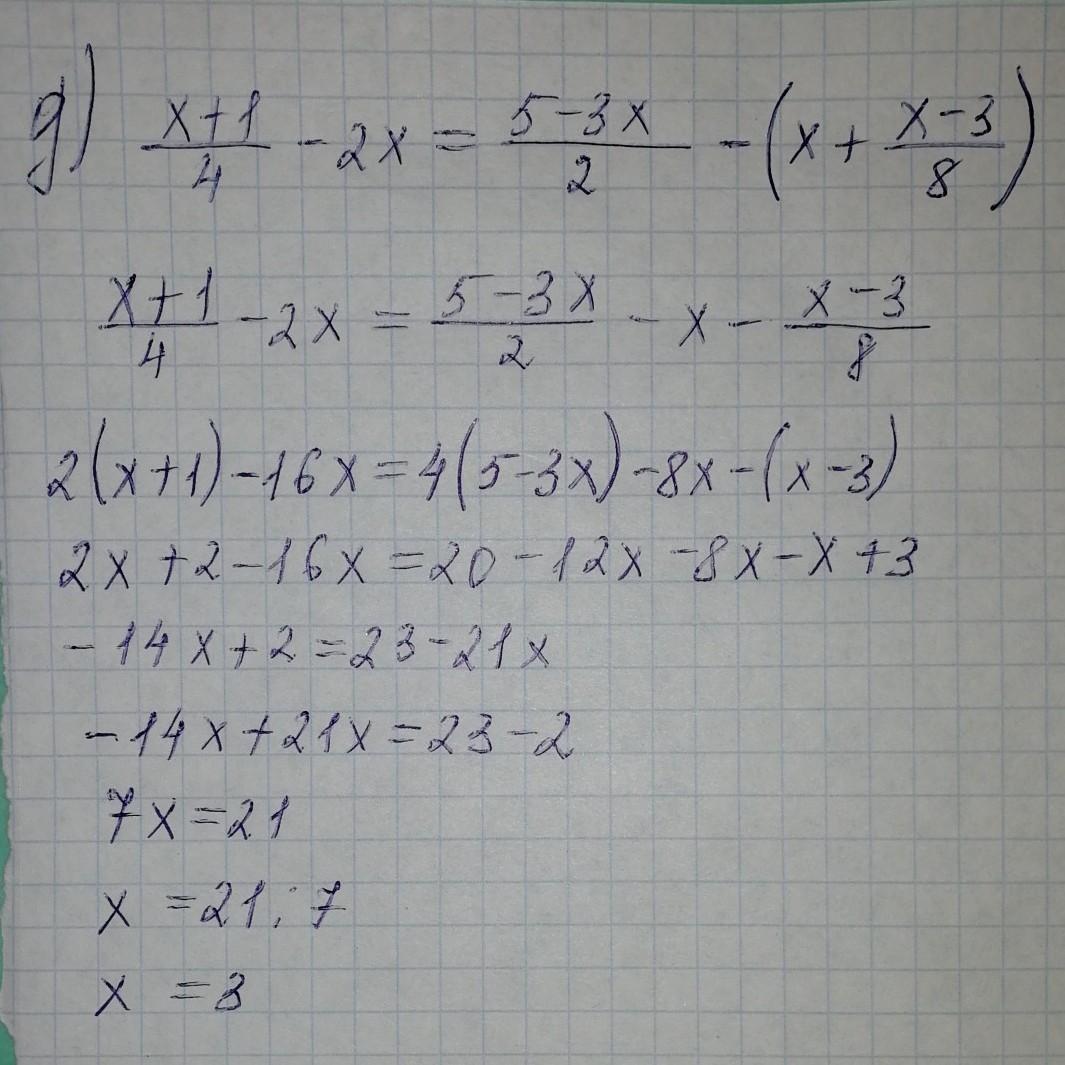 д) (x+1)/4 - 2x = (5-3x)/2 - (x + (x-3)/8)
(x+1)/4 - 2x = (5-3x)/2 - x - (x-3)/8
2(x+1)-16x=4(5-3x)-8x-(x-3)
2x+2-16x=20-12x-8x-x+3
-14x+2=23-21x
-14x+21x=23-2
7x=21
x=21:7
x=3